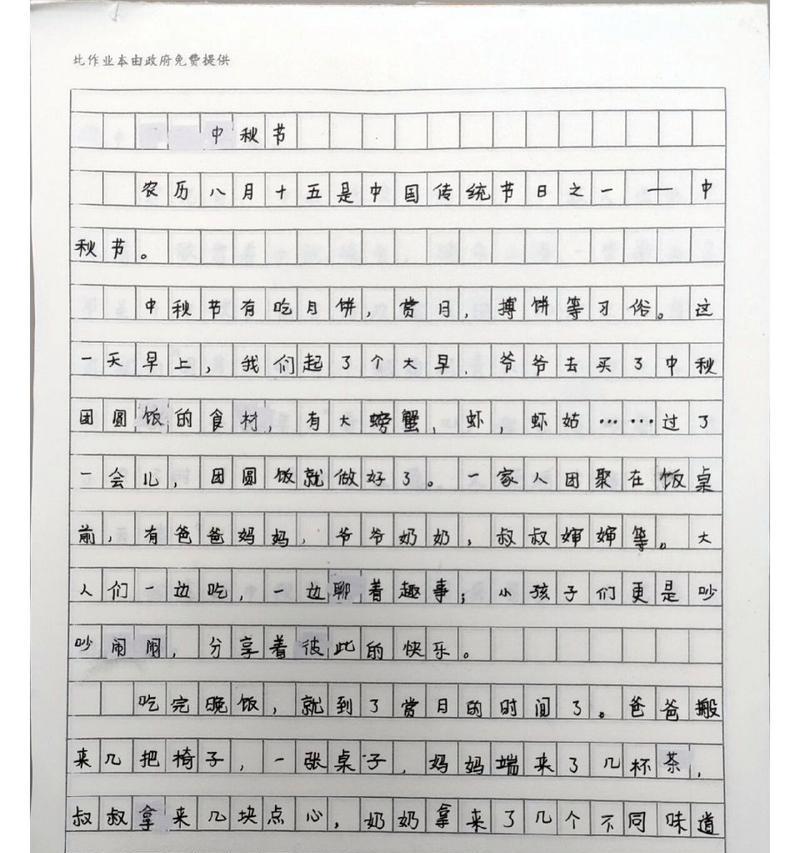 此作业本由政府免费提供
中秋节
农历八月十五是中国传统节日之一——中
秋节。
中秋节有吃月饼，赏月，搏饼等习俗。这
一天早上，我们起了个大早，爷爷去买了中秋
团圆饭的食材，有大螃蟹，虾，虾姑……过了
一会儿，团圆饭就做好了。一家人团聚在饭桌
前，有爸爸妈妈，爷爷奶奶，叔叔婶婶等。大
人们一边吃，一边聊着趣事；小孩子们更是吵
吵闹闹，分享着彼此的快乐。
吃完晚饭，就到了赏月的时间了。爸爸搬
来几把椅子，一张桌子，妈妈端来了几杯茶，
叔叔拿来几块点心，奶奶拿来了几个不同味道